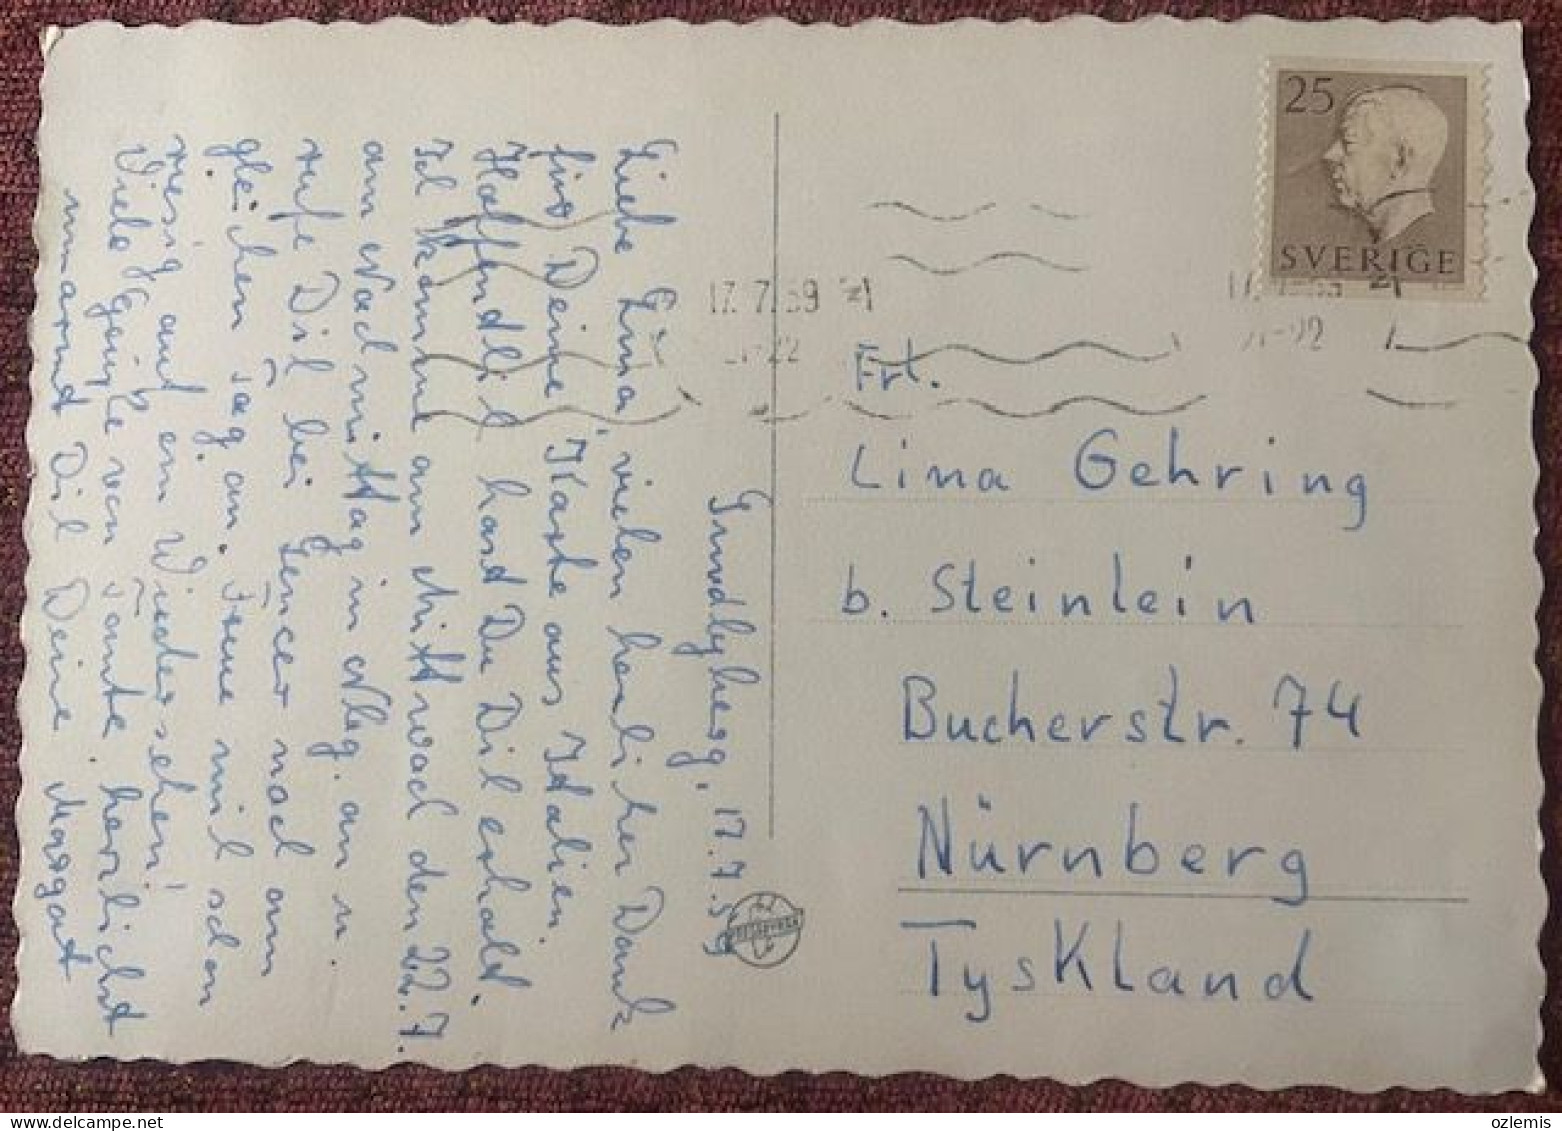 Grundlyberg, 17.7.59
Liebe Lina, vielen herzlichen Dank
für Deine Karte aus Italien.
Hoffentlich hast Du Dich erholt.
Ich komme am Mittwoch den 22.7.
am Nachmittag in Nbg. an u.
rufe Dich bei Tencer noch am
gleichen Tag an. Freue mich schon
riesig auf ein Wiedersehen!
Viele Grüße von Tante. herzlichst
umarmt Dich Deine Margot
25
SVERIGE
17.7.59
21-22
Frl.
Lina Gehring
b. Steinlein
Bucherstr. 74
Nürnberg
Tyskland
ozlemis